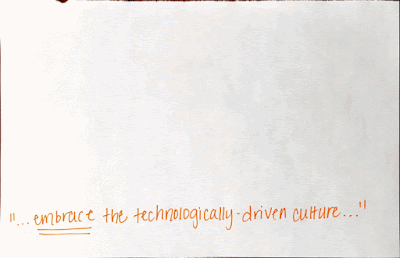 "... embrace the technologically-driven culture..."